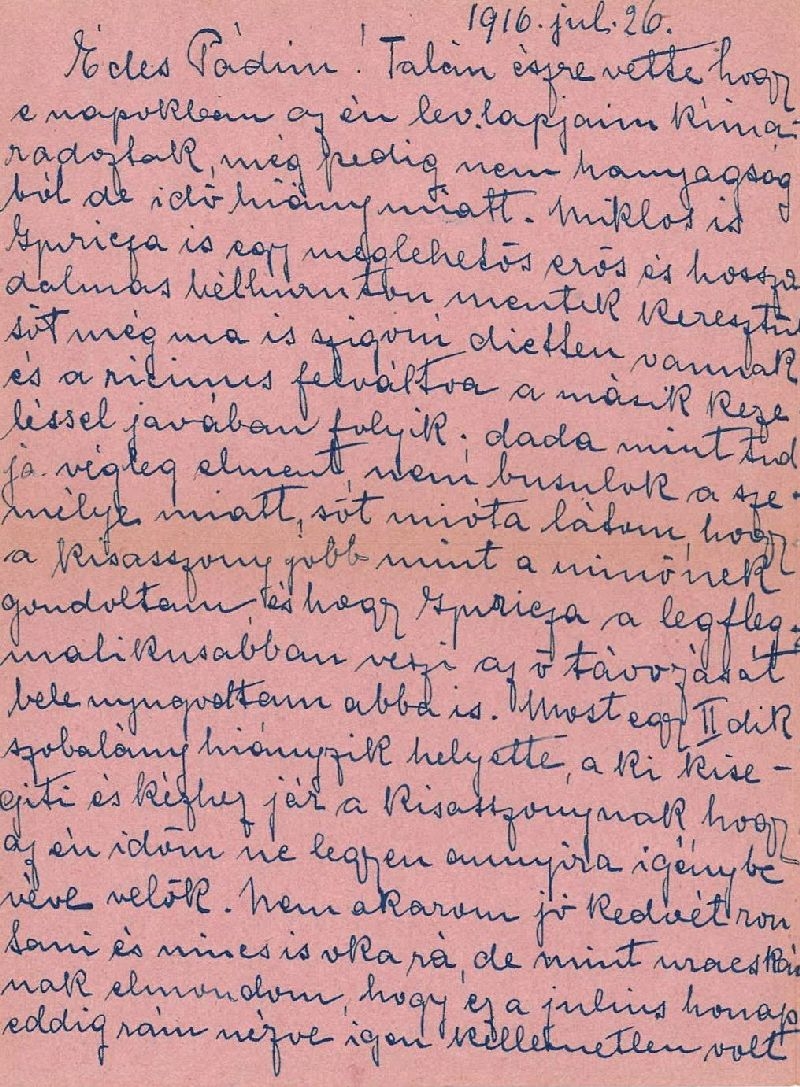 1916. jul. 26.
Édes Pádim! Talán észre vette hogy
e napokban az én lev.lapjaim kima-
radoztak, még pedig nem hanyagság
ból de idő hiány miatt. Miklos is
Gyuricza is egy meglehetős erös és hossza
dalmas bélhuruton mentek keresztül
söt még ma is szigorú dietten vannak
és a ricinus felváltva a másik keze
léssel javában folyik. dada mint tud
ja végleg elment, nem busulok a sze-
mélye miatt, söt mióta látom, hogy
a kisasszony jobb mint a minőnek
gondoltam és hogy Gyuricza a legfleg-
matikusabban veszi az ő távozását
bele nyugodtam abba is. Most egy II dik
szobalány hiányzik helyette, a ki kise-
giti és kézhez jár a kisasszonynak hogy
az én időm ne legyen annyira igénybe
véve velök. Nem akarom jó kedvét ron
tani és nincs is oka rá, de mint uracská
nak elmondom, hogy ez a julius honap
eddig rám nézve igen kellemetlen volt